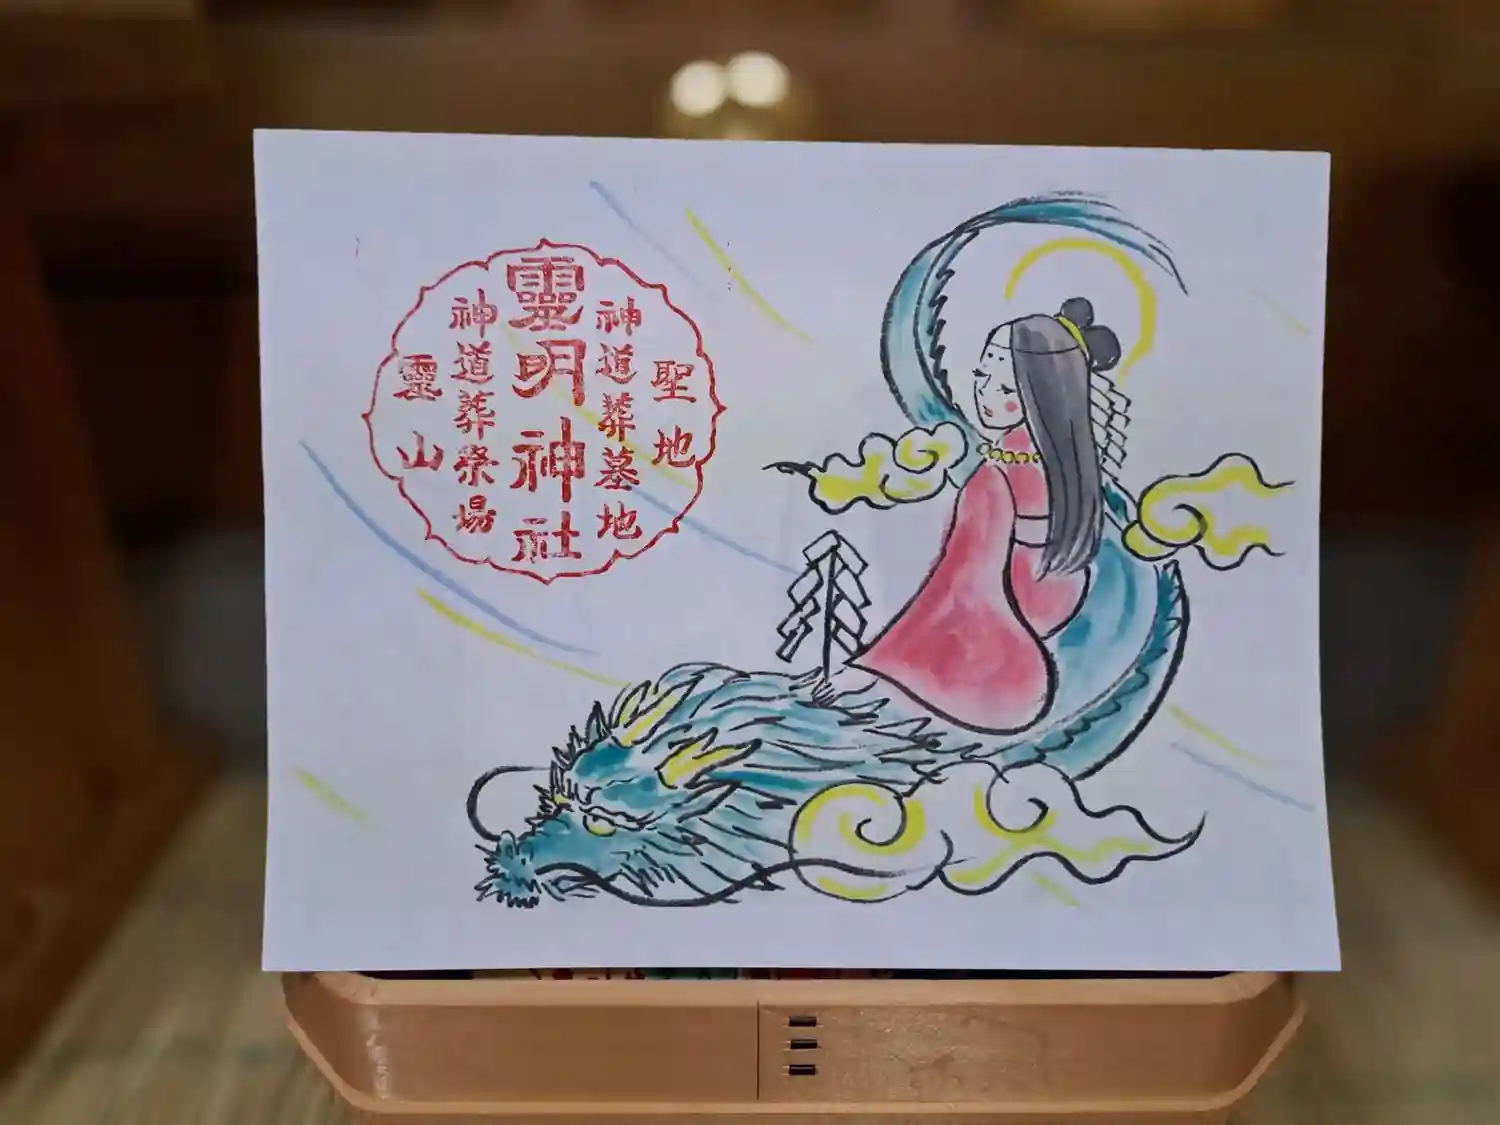 聖地
神道葬墓地
靈明神社
神道葬祭場
靈山